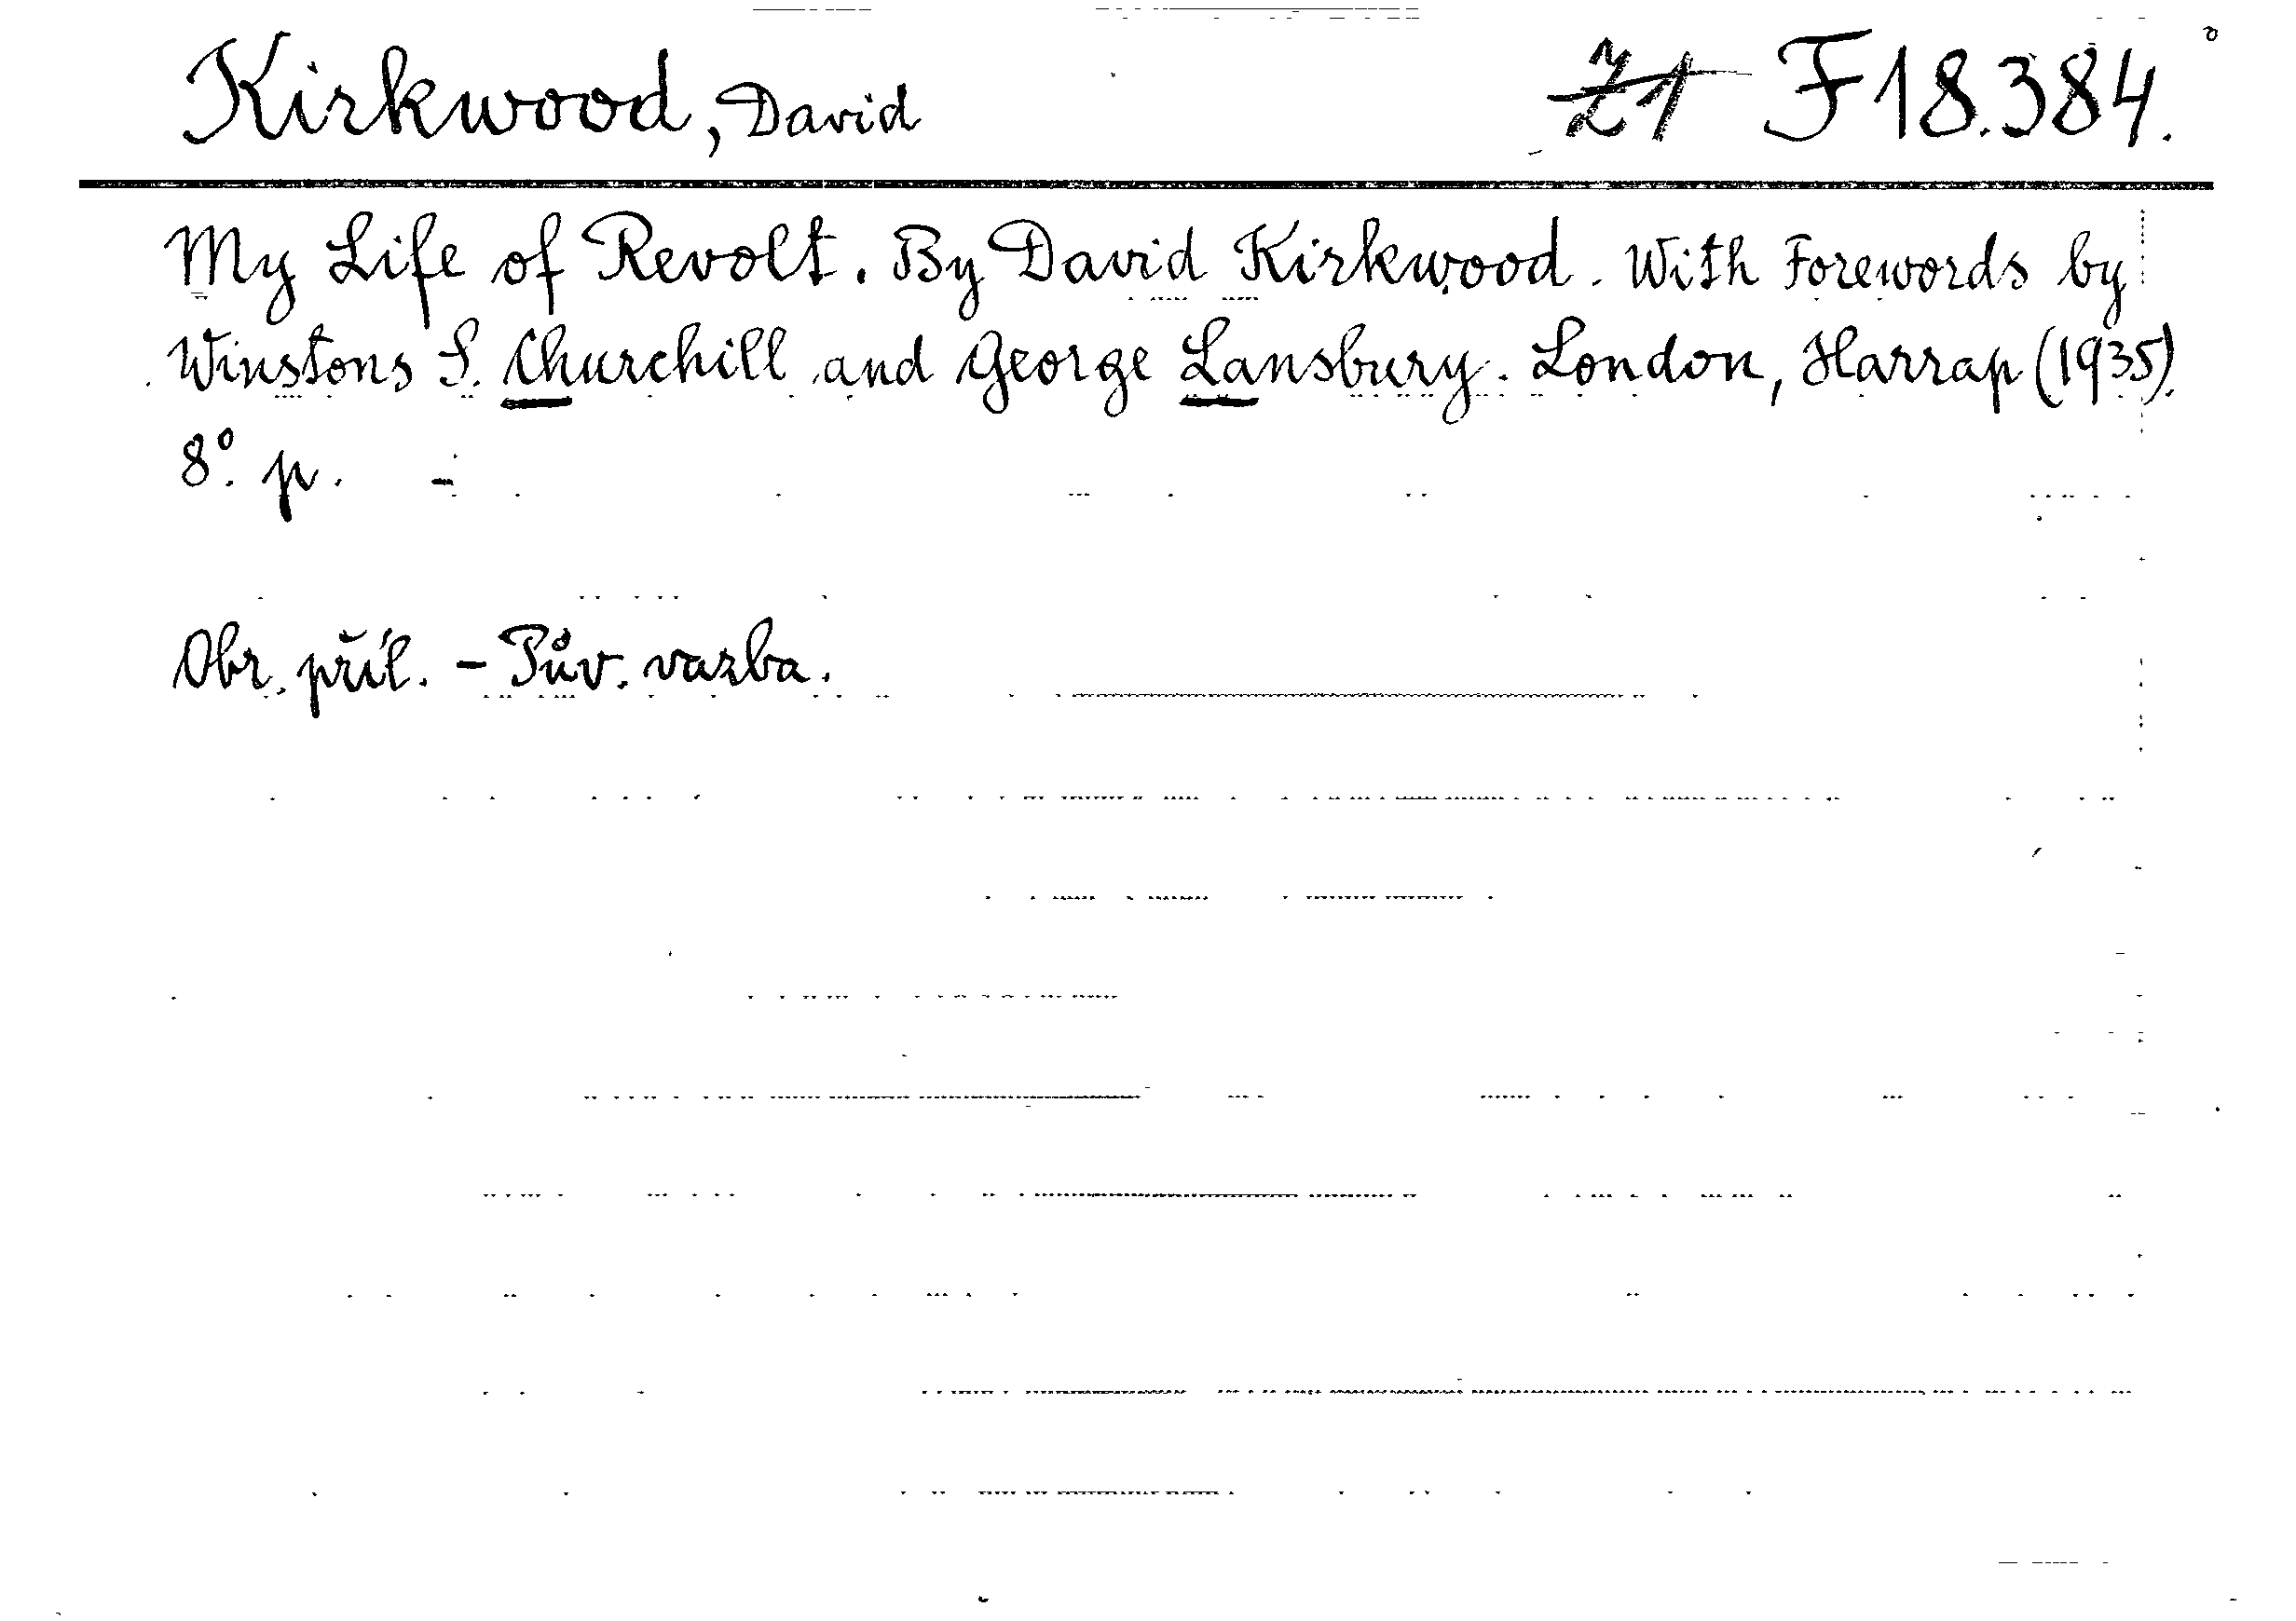 Kirkwood, David Z1 F 18.384.
My Life of Revolt. By David Kirkwood. With Forewords by
Winstons S. Churchill and George Lansbury. London, Harrap (1935).
8°. p. -
Obr. příl. - Pův. vazba.